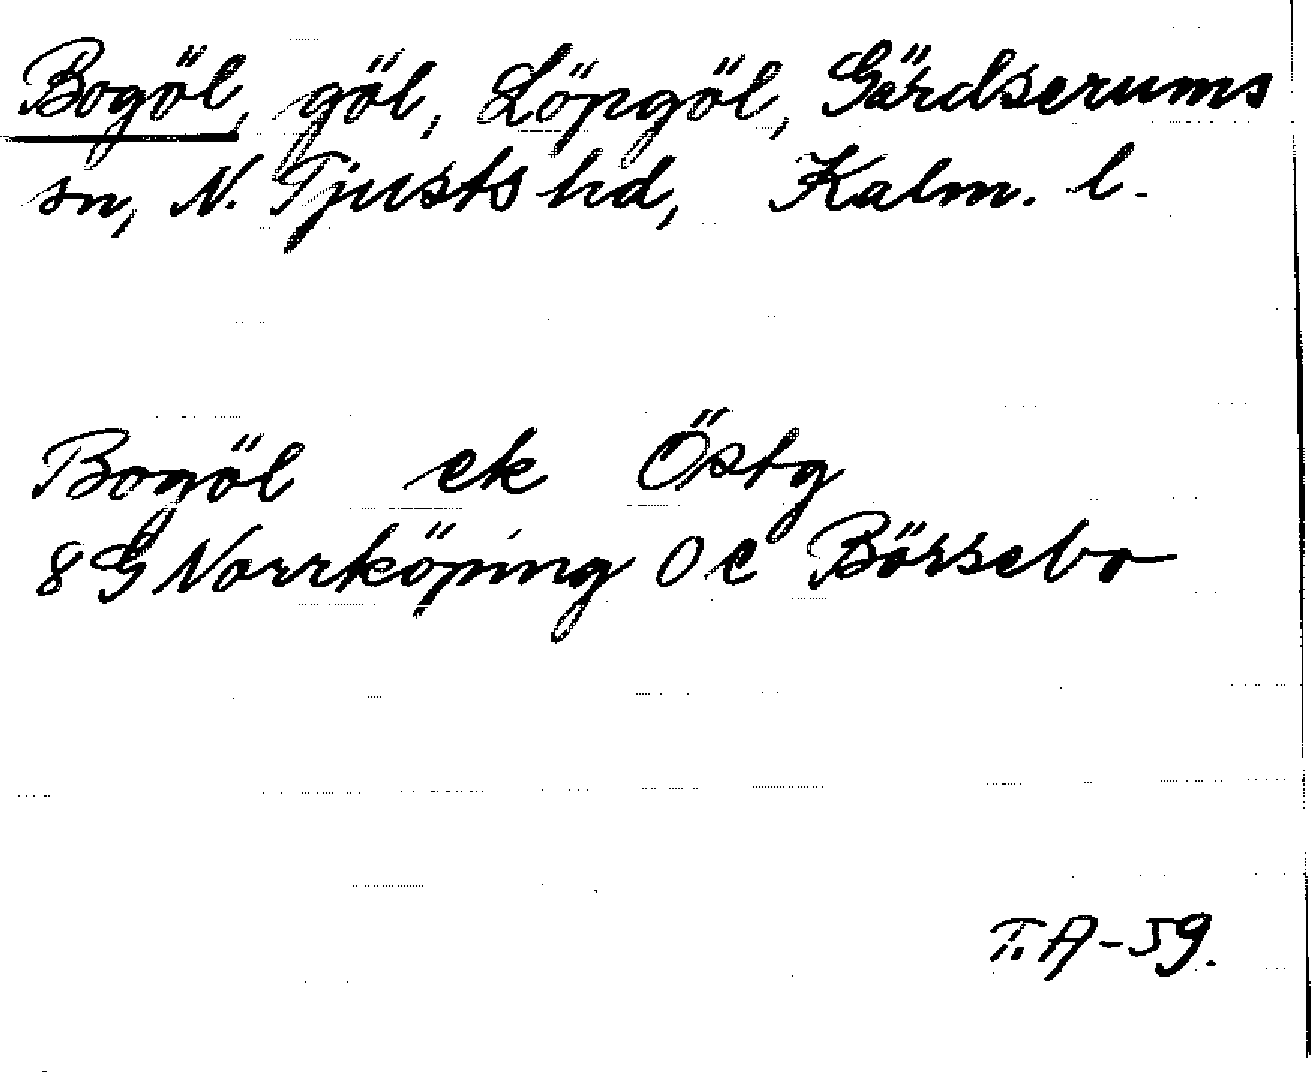 Bogöl, göl, Löpgöl, Gärdserums
sn, N. Tjusts hd, Kalm. l.
Bogöl ek Östg
8 G Norrköping 0 e Börsebo
T. A-59.